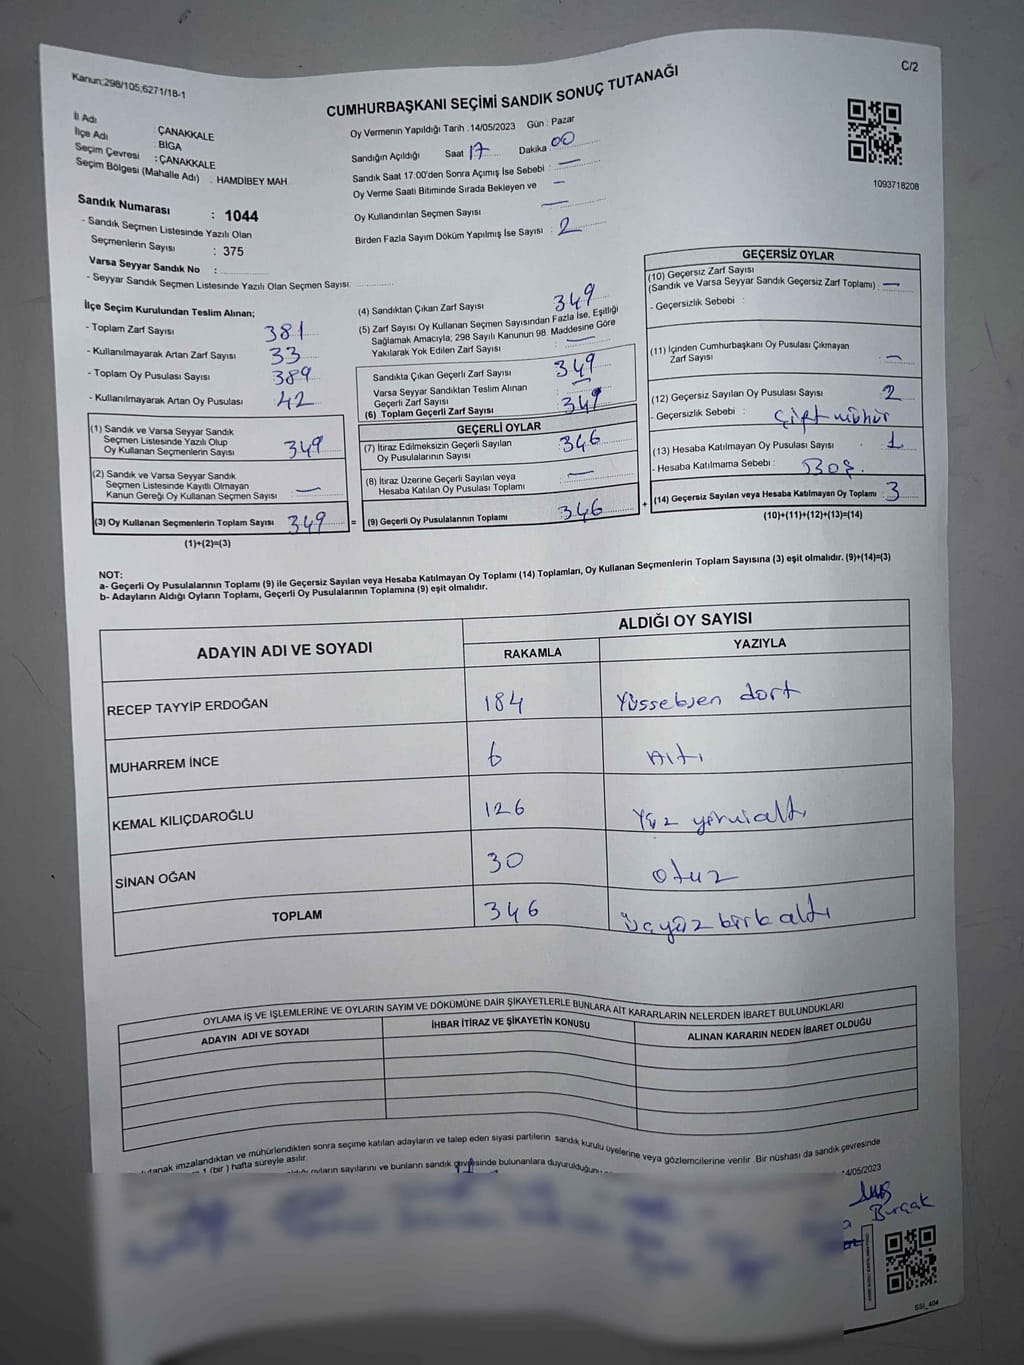 Kanun;298/105;6271/18-1
C/2
CUMHURBAŞKANI SEÇİMİ SANDIK SONUÇ TUTANAĞI
İl Adı : ÇANAKKALE
İlçe Adı : BİGA
Seçim Çevresi : ÇANAKKALE
Seçim Bölgesi (Mahalle Adı) : HAMDİBEY MAH
Sandık Numarası : 1044
- Sandık Seçmen Listesinde Yazılı Olan
Seçmenlerin Sayısı : 375
Varsa Seyyar Sandık No :
- Seyyar Sandık Seçmen Listesinde Yazılı Olan Seçmen Sayısı:
Oy Vermenin Yapıldığı Tarih :14/05/2023 Gün : Pazar
Sandığın Açıldığı Saat 17 Dakika 00
Sandık Saat 17:00'den Sonra Açımış İse Sebebi : —
Oy Verme Saati Bitiminde Sırada Bekleyen ve —
Oy Kullandırılan Seçmen Sayısı —
Birden Fazla Sayım Döküm Yapılmış İse Sayısı : 2
1093718208
İlçe Seçim Kurulundan Teslim Alınan;
- Toplam Zarf Sayısı 381
- Kullanılmayarak Artan Zarf Sayısı 33
- Toplam Oy Pusulası Sayısı 389
- Kullanılmayarak Artan Oy Pusulası 42
(1) Sandık ve Varsa Seyyar Sandık
Seçmen Listesinde Yazılı Olup
Oy Kullanan Seçmenlerin Sayısı 349
(2) Sandık ve Varsa Seyyar Sandık
Seçmen Listesinde Kayıtlı Olmayan
Kanun Gereği Oy Kullanan Seçmen Sayısı —
(3) Oy Kullanan Seçmenlerin Toplam Sayısı 349 =
(1)+(2)=(3)
(4) Sandıktan Çıkan Zarf Sayısı 349
(5) Zarf Sayısı Oy Kullanan Seçmen Sayısından Fazla İse, Eşitliği
Sağlamak Amacıyla; 298 Sayılı Kanunun 98. Maddesine Göre
Yakılarak Yok Edilen Zarf Sayısı —
Sandıkta Çıkan Geçerli Zarf Sayısı 349
Varsa Seyyar Sandıktan Teslim Alınan
Geçerli Zarf Sayısı —
(6) Toplam Geçerli Zarf Sayısı 349
GEÇERLİ OYLAR
(7) İtiraz Edilmeksizin Geçerli Sayılan
Oy Pusulalarının Sayısı 346
(8) İtiraz Üzerine Geçerli Sayılan veya
Hesaba Katılan Oy Pusulası Toplamı —
(9) Geçerli Oy Pusulalarının Toplamı 346 +
GEÇERSİZ OYLAR
(10) Geçersiz Zarf Sayısı
(Sandık ve Varsa Seyyar Sandık Geçersiz Zarf Toplamı) : —
- Geçersizlik Sebebi :
(11) İçinden Cumhurbaşkanı Oy Pusulası Çıkmayan
Zarf Sayısı —
(12) Geçersiz Sayılan Oy Pusulası Sayısı 2
- Geçersizlik Sebebi : Çift mühür
(13) Hesaba Katılmayan Oy Pusulası Sayısı : 1
- Hesaba Katılmama Sebebi : Boş.
(14) Geçersiz Sayılan veya Hesaba Katılmayan Oy Toplamı 3
(10)+(11)+(12)+(13)=(14)
NOT:
a- Geçerli Oy Pusulalarının Toplamı (9) ile Geçersiz Sayılan veya Hesaba Katılmayan Oy Toplamı (14) Toplamları, Oy Kullanan Seçmenlerin Toplam Sayısına (3) eşit olmalıdır. (9)+(14)=(3)
b- Adayların Aldığı Oyların Toplamı, Geçerli Oy Pusulalarının Toplamına (9) eşit olmalıdır.
ADAYIN ADI VE SOYADI
ALDIĞI OY SAYISI
RAKAMLA YAZIYLA
RECEP TAYYİP ERDOĞAN 184 Yüsseksen dört
MUHARREM İNCE 6 Altı
KEMAL KILIÇDAROĞLU 126 Yüz yirmialtı
SİNAN OĞAN 30 otuz
TOPLAM 346 üçyüz kırk altı
OYLAMA İŞ VE İŞLEMLERİNE VE OYLARIN SAYIM VE DÖKÜMÜNE DAİR ŞİKAYETLERLE BUNLARA AİT KARARLARIN NELERDEN İBARET BULUNDUKLARI
ADAYIN ADI VE SOYADI İHBAR İTİRAZ VE ŞİKAYETİN KONUSU ALINAN KARARIN NEDEN İBARET OLDUĞU
utanak imzalandıktan ve mühürlendikten sonra seçime katılan adayların ve talep eden siyasi partilerin sandık kurulu üyelerine veya gözlemcilerine verilir .Bir nüshası da sandık çevresinde
(bir) hafta süreyle asılır.
oyların sayılarını ve bunların sandık çevresinde bulunanlara duyurulduğunu
14/05/2023
Burçak
SSI_404